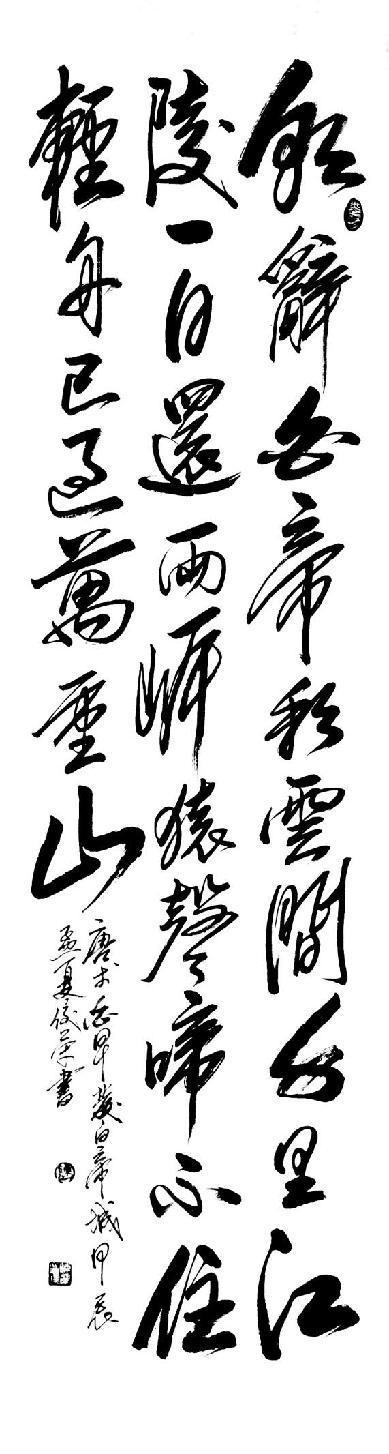 朝辭白帝彩雲間千里江
陵一日還兩岸猿聲啼不住
輕舟已過萬重山
唐李白早發白帝城甲辰
孟夏俊書